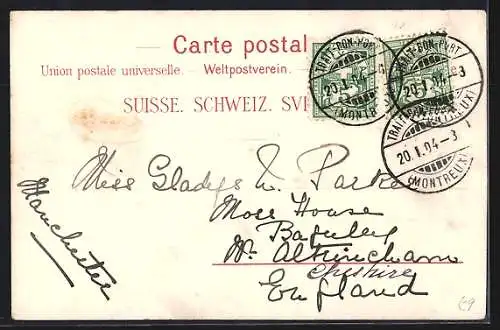 Carte postale
Union postale universelle. – Weltpostverein.
SUISSE. SCHWEIZ.
TRAIT-BON-PORT
20.I.04
(MONTREUX)
TRAIT-BON-PORT
20.I.04 – 3
(MONTREUX)
TRAIT-BON-PORT
20.I.04 – 3
(MONTREUX)
Miss Gladys W. Parke
Moss House
Baguley
Nr. Altrincham
Cheshire
England
Manchester